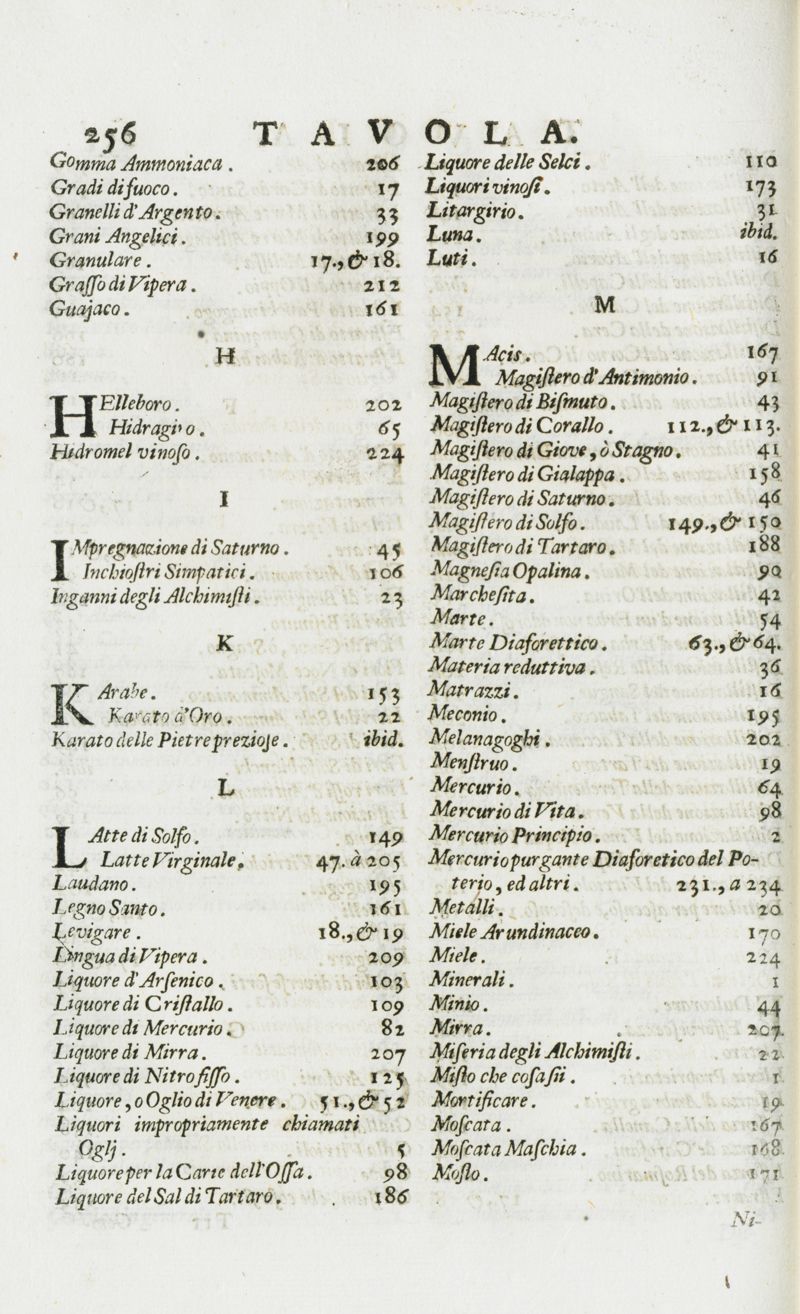 256 TAVOLA.
Gomma Ammoniaca. 206
Gradi di fuoco. 17
Granelli d'Argento. 33
Grani Angelici. 199
Granulare. 17., & 18.
Graſſo di Vipera. 212
Guajaco. 161
H
HElleboro. 202
Hidragivo. 65
Hidromel vinoſo. 224
I
IMpregnazione di Saturno. 45
Inchioſtri Simpatici. 106
Inganni degli Alchimiſti. 23
K
KArabe. 153
Karato d'Oro. 22
Karato delle Pietre prezioſe. ibid.
L
LAtte di Solfo. 149
Latte Virginale. 47. à 205
Laudano. 195
Legno Santo. 161
Levigare. 18., & 19
Lingua di Vipera. 209
Liquore d'Arſenico. 103
Liquore di Criſtallo. 109
Liquore di Mercurio. 82
Liquore di Mirra. 207
Liquore di Nitro fiſſo. 125
Liquore, o Oglio di Venere. 51., & 52
Liquori impropriamente chiamati
Oglj. 5
Liquore per la Carie dell'Oſſa. 98
Liquore del Sal di Tartaro. 186
Liquore delle Selci. 110
Liquori vinoſi. 173
Litargirio. 31
Luna. ibid.
Luti. 16
M
MAcis. 167
Magiſtero d'Antimonio. 91
Magiſtero di Biſmuto. 43
Magiſtero di Corallo. 112., & 113.
Magiſtero di Giove, ò Stagno. 41
Magiſtero di Gialappa. 158
Magiſtero di Saturno. 46
Magiſtero di Solfo. 149., & 150
Magiſtero di Tartaro. 188
Magneſia Opalina. 90
Marcheſita. 42
Marte. 54
Marte Diaforettico. 63., & 64.
Materia reduttiva. 36
Matrazzi. 16
Meconio. 195
Melanagoghi. 202
Menſtruo. 19
Mercurio. 64
Mercurio di Vita. 98
Mercurio Principio. 2
Mercurio purgante Diaforetico del Po-
terio, ed altri. 231., a 234
Metalli. 20
Miele Arundinaceo. 170
Miele. 224
Minerali. 1
Minio. 44
Mirra. 207.
Miſeria degli Alchimiſti. 22
Miſto che coſa ſii. 1
Mortificare. 19
Moſcata. 167
Moſcata Maſchia. 168
Moſto. 171
Ni-